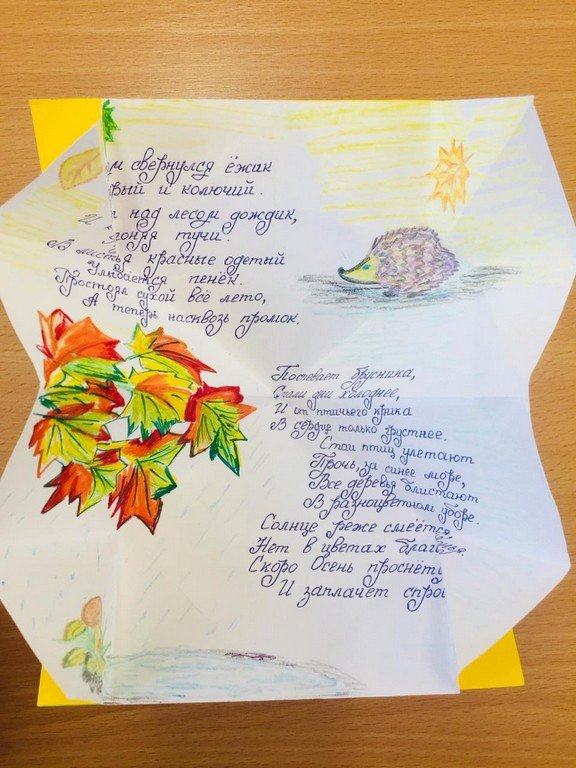 м свернулся ёжик
вый и колючий.
И т над лесом дождик,
гоняя тучи.
В листья красные одетый
Улыбается пенёк.
Простоял сухой всё лето,
А теперь насквозь промок.
Поспевает брусника,
Стали дни холоднее,
И от птичьего крика
В сердце только грустнее.
Стаи птиц улетают
Прочь, за синее море,
Все деревья блистают
В разноцветном уборе.
Солнце реже смеётся,
Нет в цветах благо
Скоро Осень проснёт
И заплачет спро